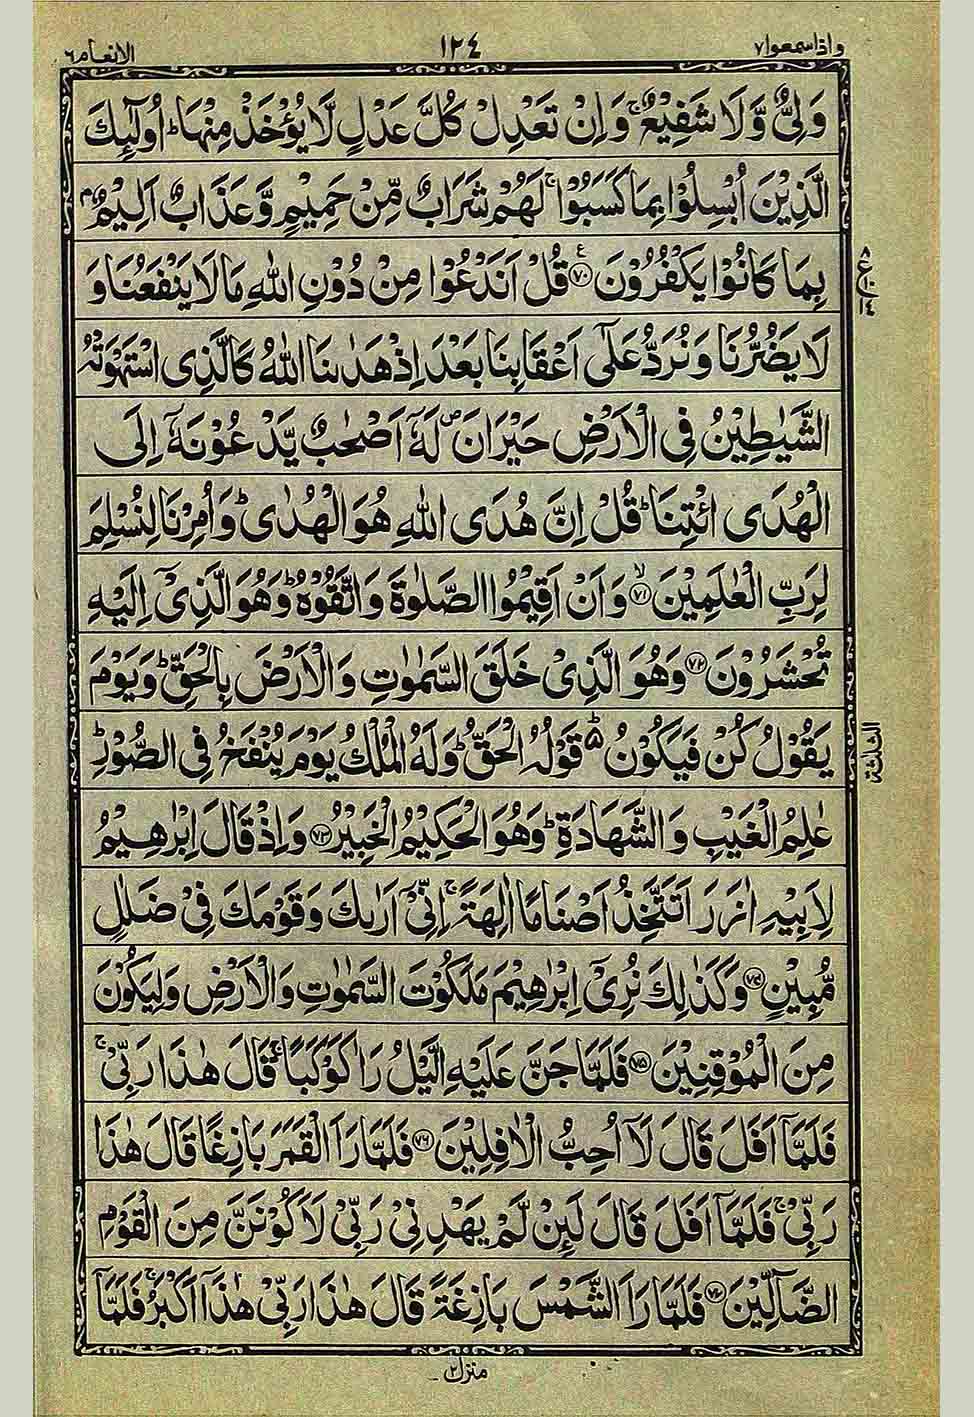 واذاسمعوا٧ ١٢٤ الانعام٦
وَلِيٌّ وَّلَا شَفِيْعٌ ۚ وَاِنْ تَعْدِلْ كُلَّ عَدْلٍ لَّا يُؤْخَذْ مِنْهَا ؕ اُولٰٓئِكَ
الَّذِيْنَ اُبْسِلُوْا بِمَا كَسَبُوْا ۚ لَهُمْ شَرَابٌ مِّنْ حَمِيْمٍ وَّعَذَابٌ اَلِيْمٌۢ
بِمَا كَانُوْا يَكْفُرُوْنَ ﴿٧٠﴾ قُلْ اَنَدْعُوْا مِنْ دُوْنِ اللّٰهِ مَا لَا يَنْفَعُنَا وَ
لَا يَضُرُّنَا وَنُرَدُّ عَلٰٓى اَعْقَابِنَا بَعْدَ اِذْ هَدٰىنَا اللّٰهُ كَالَّذِى اسْتَهْوَتْهُ
الشَّيٰطِيْنُ فِى الْاَرْضِ حَيْرَانَ ۪ لَهٗۤ اَصْحٰبٌ يَّدْعُوْنَهٗۤ اِلَى
الْهُدَى ائْتِنَا ؕ قُلْ اِنَّ هُدَى اللّٰهِ هُوَ الْهُدٰى ؕ وَاُمِرْنَا لِنُسْلِمَ
لِرَبِّ الْعٰلَمِيْنَ ۙ﴿٧١﴾ وَاَنْ اَقِيْمُوا الصَّلٰوةَ وَاتَّقُوْهُ ؕ وَهُوَ الَّذِيْۤ اِلَيْهِ
تُحْشَرُوْنَ ﴿٧٢﴾ وَهُوَ الَّذِيْ خَلَقَ السَّمٰوٰتِ وَالْاَرْضَ بِالْحَقِّ ؕ وَيَوْمَ
يَقُوْلُ كُنْ فَيَكُوْنُ ۬ؕ قَوْلُهُ الْحَقُّ ؕ وَلَهُ الْمُلْكُ يَوْمَ يُنْفَخُ فِى الصُّوْرِ ؕ
عٰلِمُ الْغَيْبِ وَالشَّهَادَةِ ؕ وَهُوَ الْحَكِيْمُ الْخَبِيْرُ ﴿٧٣﴾ وَاِذْ قَالَ اِبْرٰهِيْمُ
لِاَبِيْهِ اٰزَرَ اَتَتَّخِذُ اَصْنَامًا اٰلِهَةً ۚ اِنِّيْۤ اَرٰىكَ وَقَوْمَكَ فِيْ ضَلٰلٍ
مُّبِيْنٍ ﴿٧٤﴾ وَكَذٰلِكَ نُرِيْۤ اِبْرٰهِيْمَ مَلَكُوْتَ السَّمٰوٰتِ وَالْاَرْضِ وَلِيَكُوْنَ
مِنَ الْمُوْقِنِيْنَ ﴿٧٥﴾ فَلَمَّا جَنَّ عَلَيْهِ الَّيْلُ رَاٰ كَوْكَبًا ۚ قَالَ هٰذَا رَبِّيْ ۚ
فَلَمَّاۤ اَفَلَ قَالَ لَاۤ اُحِبُّ الْاٰفِلِيْنَ ﴿٧٦﴾ فَلَمَّا رَاَ الْقَمَرَ بَازِغًا قَالَ هٰذَا
رَبِّيْ ۚ فَلَمَّاۤ اَفَلَ قَالَ لَئِنْ لَّمْ يَهْدِنِيْ رَبِّيْ لَاَكُوْنَنَّ مِنَ الْقَوْمِ
الضَّآلِّيْنَ ﴿٧٧﴾ فَلَمَّا رَاَ الشَّمْسَ بَازِغَةً قَالَ هٰذَا رَبِّيْ هٰذَاۤ اَكْبَرُ ۚ فَلَمَّاۤ
الثلثة
منزل٢